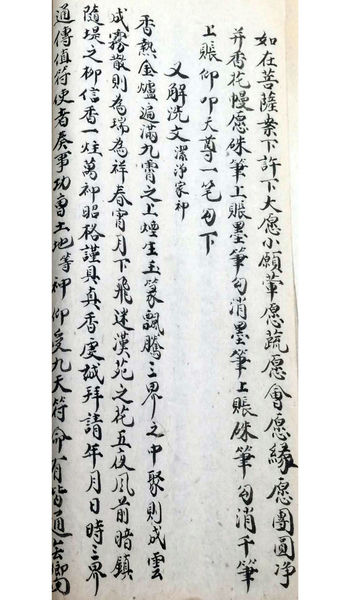 如在菩薩案下許下大愿小願葷愿蔬愿會愿緣愿團圓净
并香花幔愿硃筆上賬墨筆勾消墨筆上賬硃筆勾消千筆
上賬仰叩天尊一笔勾下
又解洗文 潔淨家神
香熱金爐遍滿九霄之上煙生玉篆飄騰三界之中聚則成雲
成霧散則為瑞為祥春宵月下飛迷漢苑之花五夜風前暗鎮
隨堤之柳信香一炷萬神昭格謹具真香虔誠拜請年月日時三界
通傳值符使者奏事功曹土地等神仰受九天符命有皆通